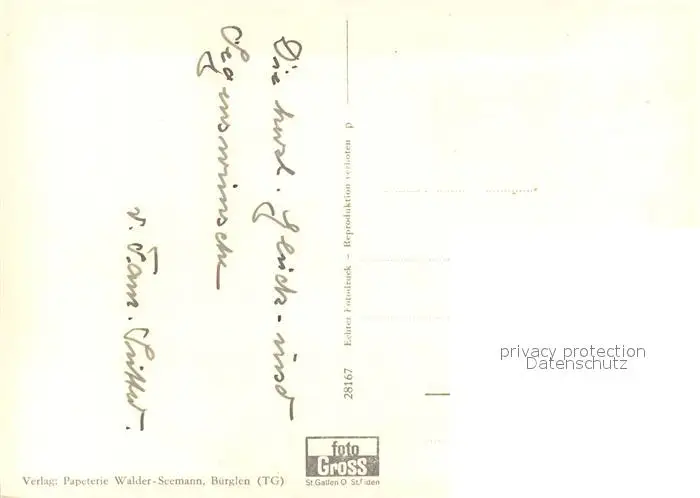 Die herzl. Glück- und
Segenswünsche
v. Fam.
28167 Echter Fotodruck – Reproduktion verboten p
foto
Gross
St.Gallen O St.Fiden
Verlag: Papeterie Walder-Seemann, Bürglen (TG)
privacy protection
Datenschutz